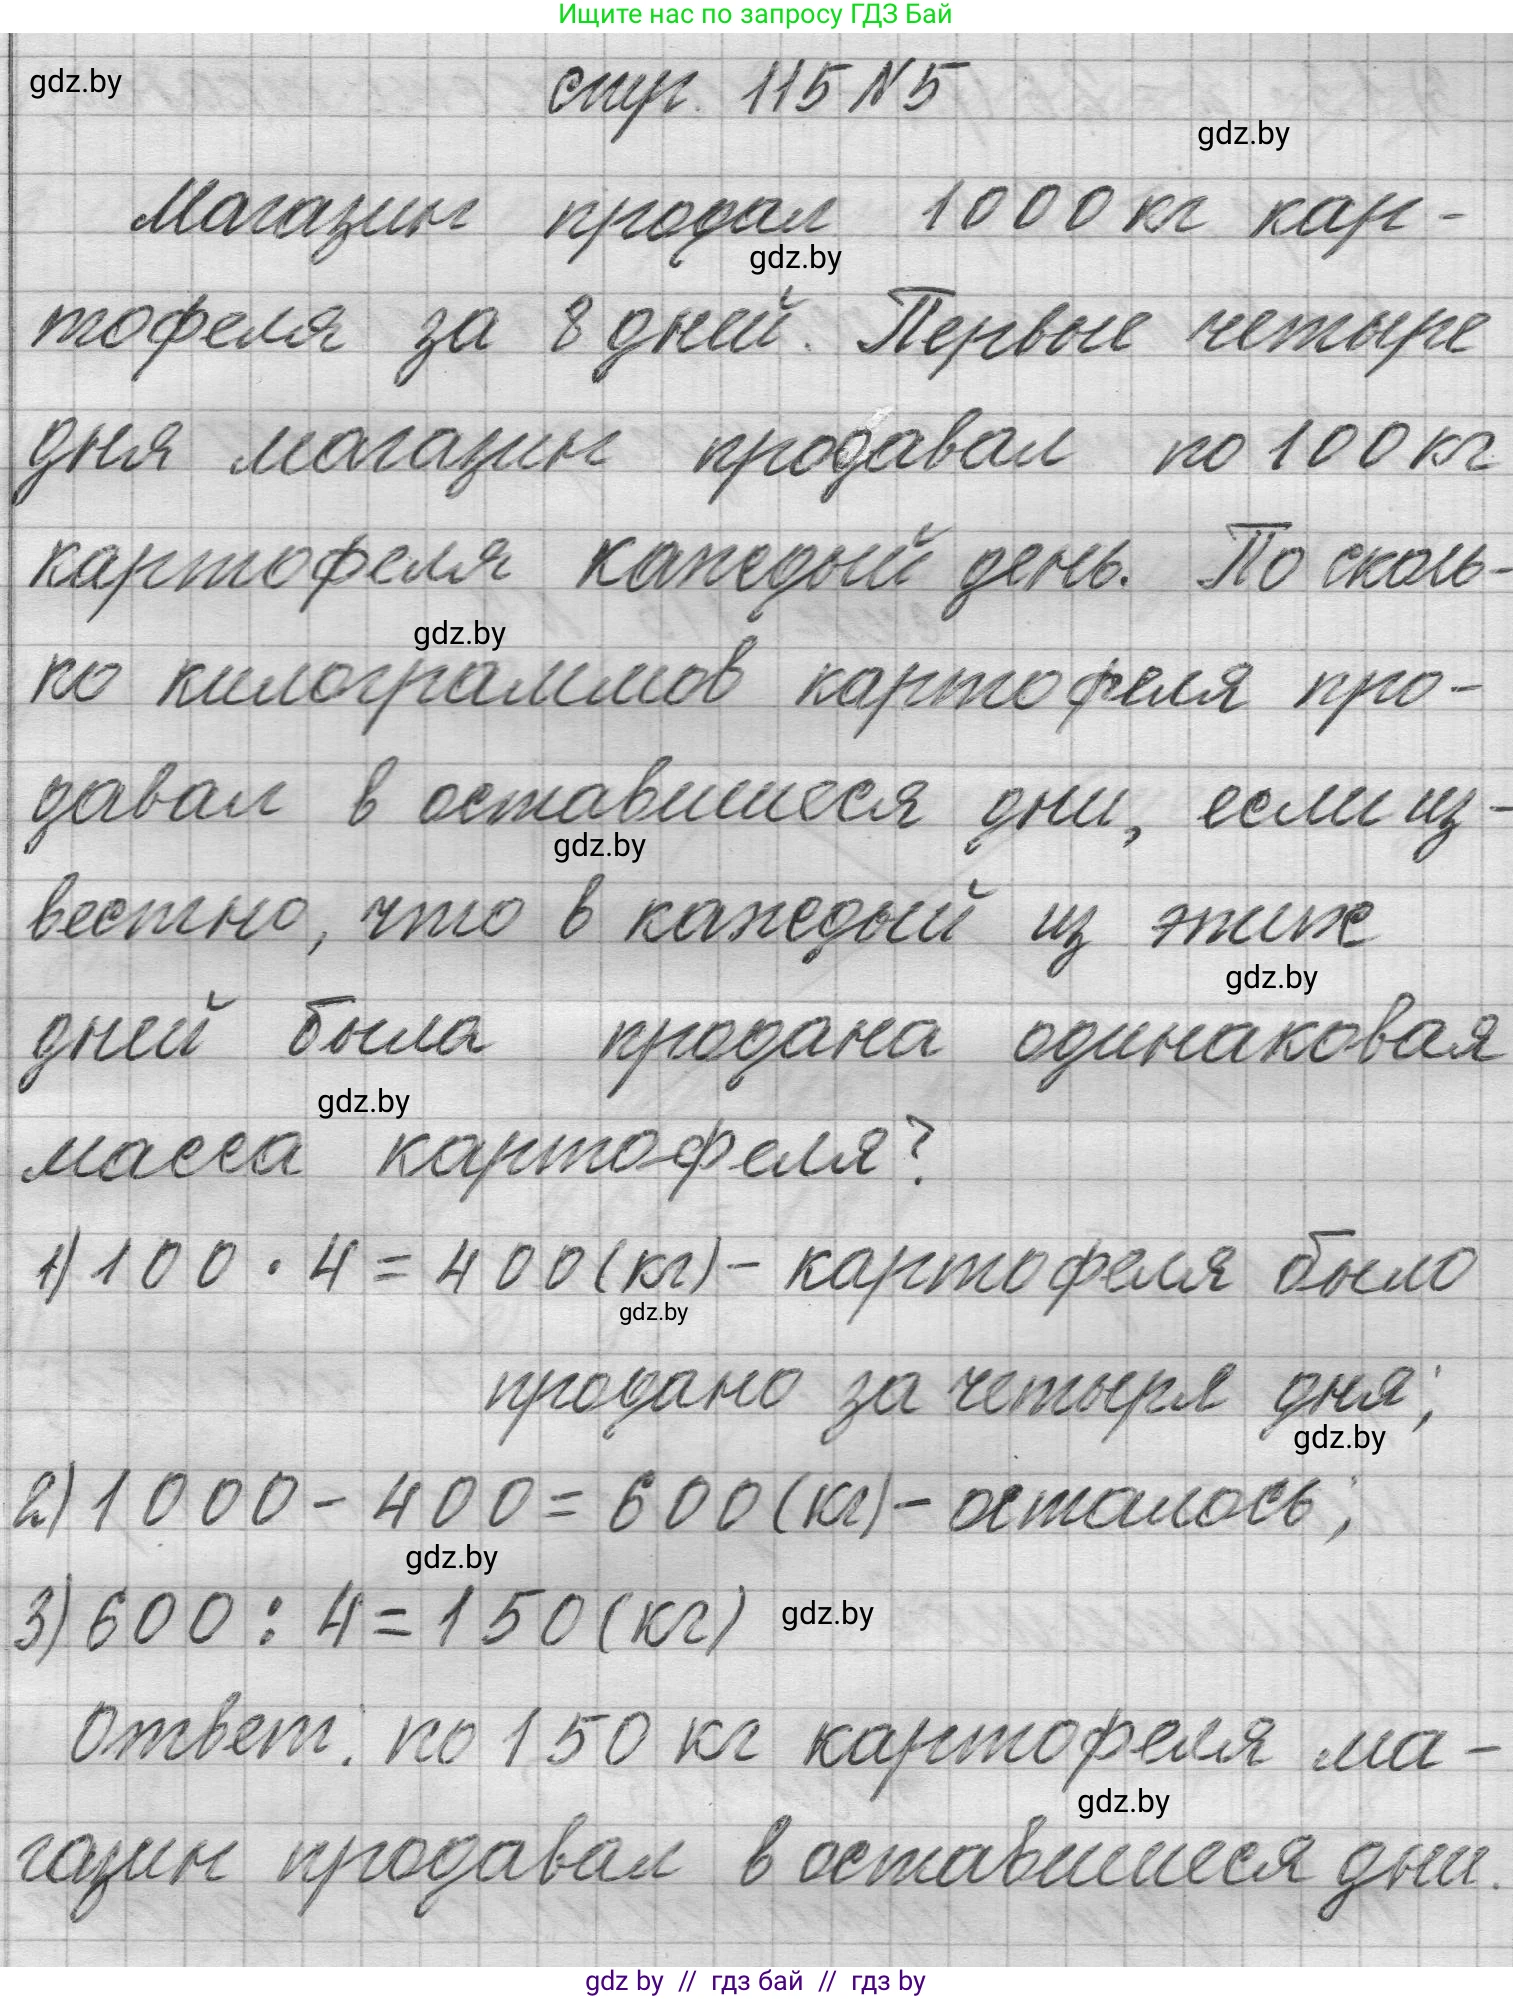 Ищите нас по запросу ГДЗ Бай
gdz.by
стр. 115 №5
gdz.by
Магазин продал 1000 кг кар-
gdz.by
тофеля за 8 дней. Первые четыре
дня магазин продавал по 100 кг
картофеля каждый день. По сколь-
gdz.by
ко килограммов картофеля про-
давал в оставшиеся дни, если из-
gdz.by
вестно, что в каждый из этих
gdz.by
дней была продана одинаковая
gdz.by
масса картофеля?
1) 100 · 4 = 400 (кг) - картофеля было
gdz.by
продано за четыре дня;
gdz.by
2) 1000 - 400 = 600 (кг) - осталось;
gdz.by
3) 600 : 4 = 150 (кг)
gdz.by
Ответ: по 150 кг картофеля ма-
gdz.by
газин продавал в оставшиеся дни.
gdz by // гдз бай // гдз by